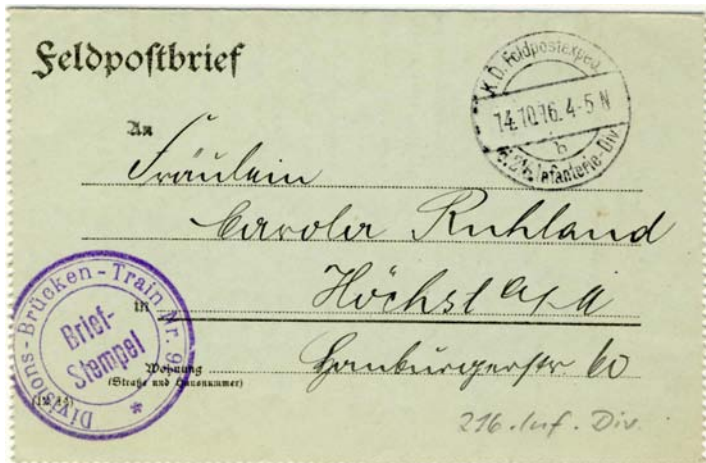 Feldpostbrief
K.D. Feldpostexped.
14.10.16. 4-5 N
b
d. 216. Infanterie-Div.
An
Fräulein
Carola Ruhland
in Höchst a/M
Wohnung Homburgerstr 60
(Straße und Hausnummer)
Divisions-Brücken-Train Nr. 9
Brief-
Stempel
216. Inf. Div.